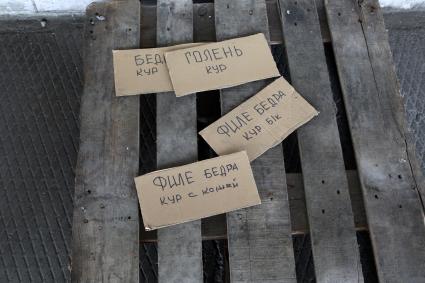 БЕД
КУР
ГОЛЕНЬ
КУР
ФИЛЕ БЕДРА
КУР Б\К
ФИЛЕ БЕДРА
КУР С КОЖЕЙ